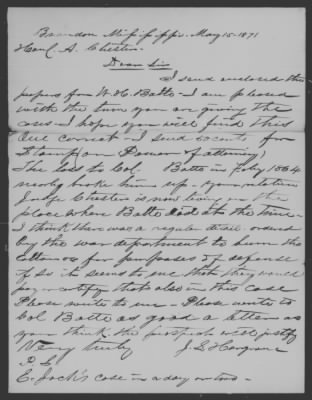 Brandon Mississippi. May 15-1871
Hon C. A. Chester.
Dear Sir
I send enclosed the
papers for W. H. Batte - I am pleased
with the turn you are giving the
case - I hope you will find this
one correct - I send 50 cents for
Stamp on Power of attorney)
The loss to Col Batte in Feby 1864
nearly broke him up - your relation
Judge Chester is now living on the
place where Batte did at the time -
I think there was a regular detail ordered
by the war department to burn the
cotton as for purposes of defense
if so it seems to me that they would
pay or certify that also in this case
Please write to me - Please write to
Col Batte as good a letter as
you think the prospects will justify
Very truly J. S. Hargrove
P. S.
E. Jack's case in a day or two -